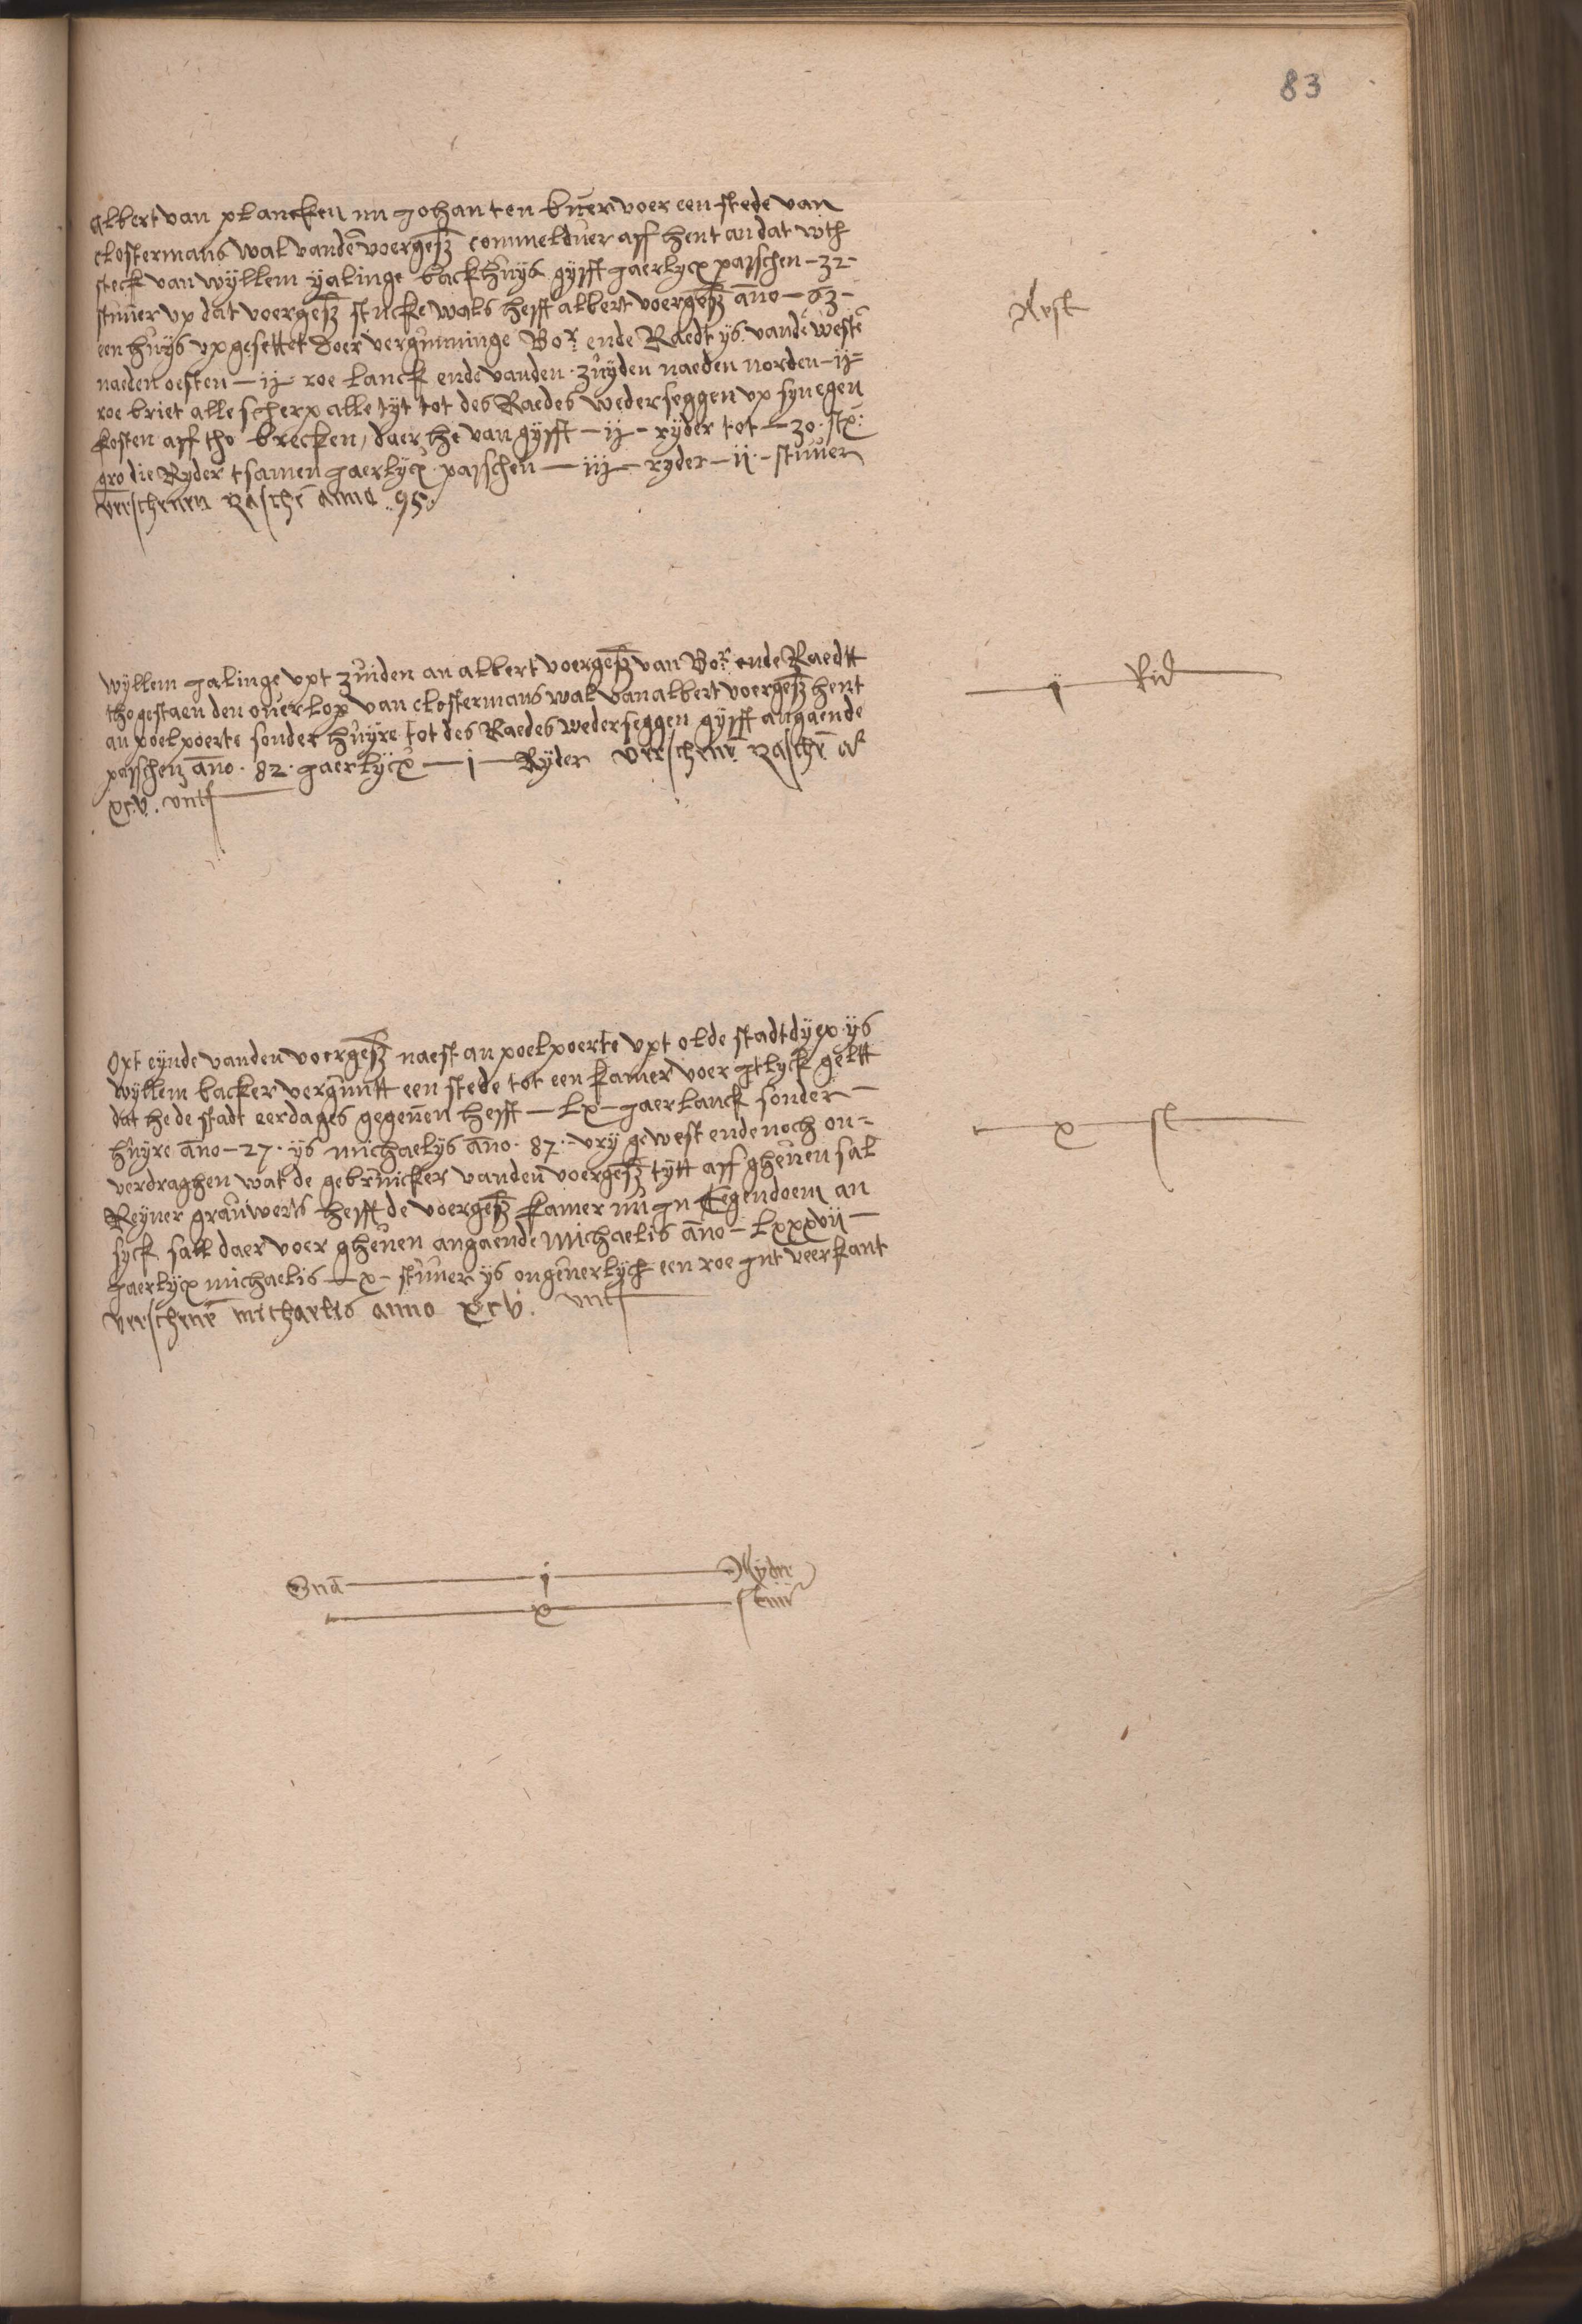 83
albert van plancken nu johan ten buer voer een stede van
clostermans wal vandē voergeß commelduer aff hent an dat wth
steck van wyllem yalinge backhuys gyfft jaerlycx paschen - 32 -
stuuer vp dat voergeß stucke wals hefft albert voergeß āno - 63 -
een huys vpgesettet doer vergunninge Bor ende Raedt ys vandē westē
naeden oesten - ij - roe lanck ende vanden zuyden naeden norden - ij =
roe briet alle scherp alle tyt tot des Raedes wederseggen vp syn egen
kosten aff tho brecken, daer he van gyfft - ij - ryder tot - 30 - st
gro die Ryder tsamen jaerlycx paschen - iij - ryder - ij - stuuer
verschenen paschē anno 95.
Rest
wyllem jalinge vpt zuiden an albert voergeß van Bor ende Raedtt
thogestaen den ouerlop van clostermans wal van albert voergeß hent
an poelpoerte sonder huyre tot des Raedes wederseggen gyfft angaende
paschen āno 82 jaerlycx - j - Ryder verschenē paschē
xcv.
j Rid
Opt eynde vanden voergeß naest an poelpoerte vpt olde stadtdyep ys
wyllem backer verguntt een stede tot een kamer voer gtlyck geltt
dat he de stadt eerdages gegeuen hefft - Lx - jaer lanck sonder -
huyre āno - 27 - ys michaelys āno 87 - vry gewest ende noch on =
verdraghen wat de gebruicker vanden voergeß tytt aff gheuen sal
Reyner grauwerts hefft de voergeß kamer nu jn Eegendoem an
syck sall daer voer gheuen angaende Michaelis āno - Lxxxvii -
jaerlycx michaelis - x - stuuer ys ongeuerlyck een roe jnt veerkant
verschenē michaelis anno xcv.
x st
j Ryder
x stuuer